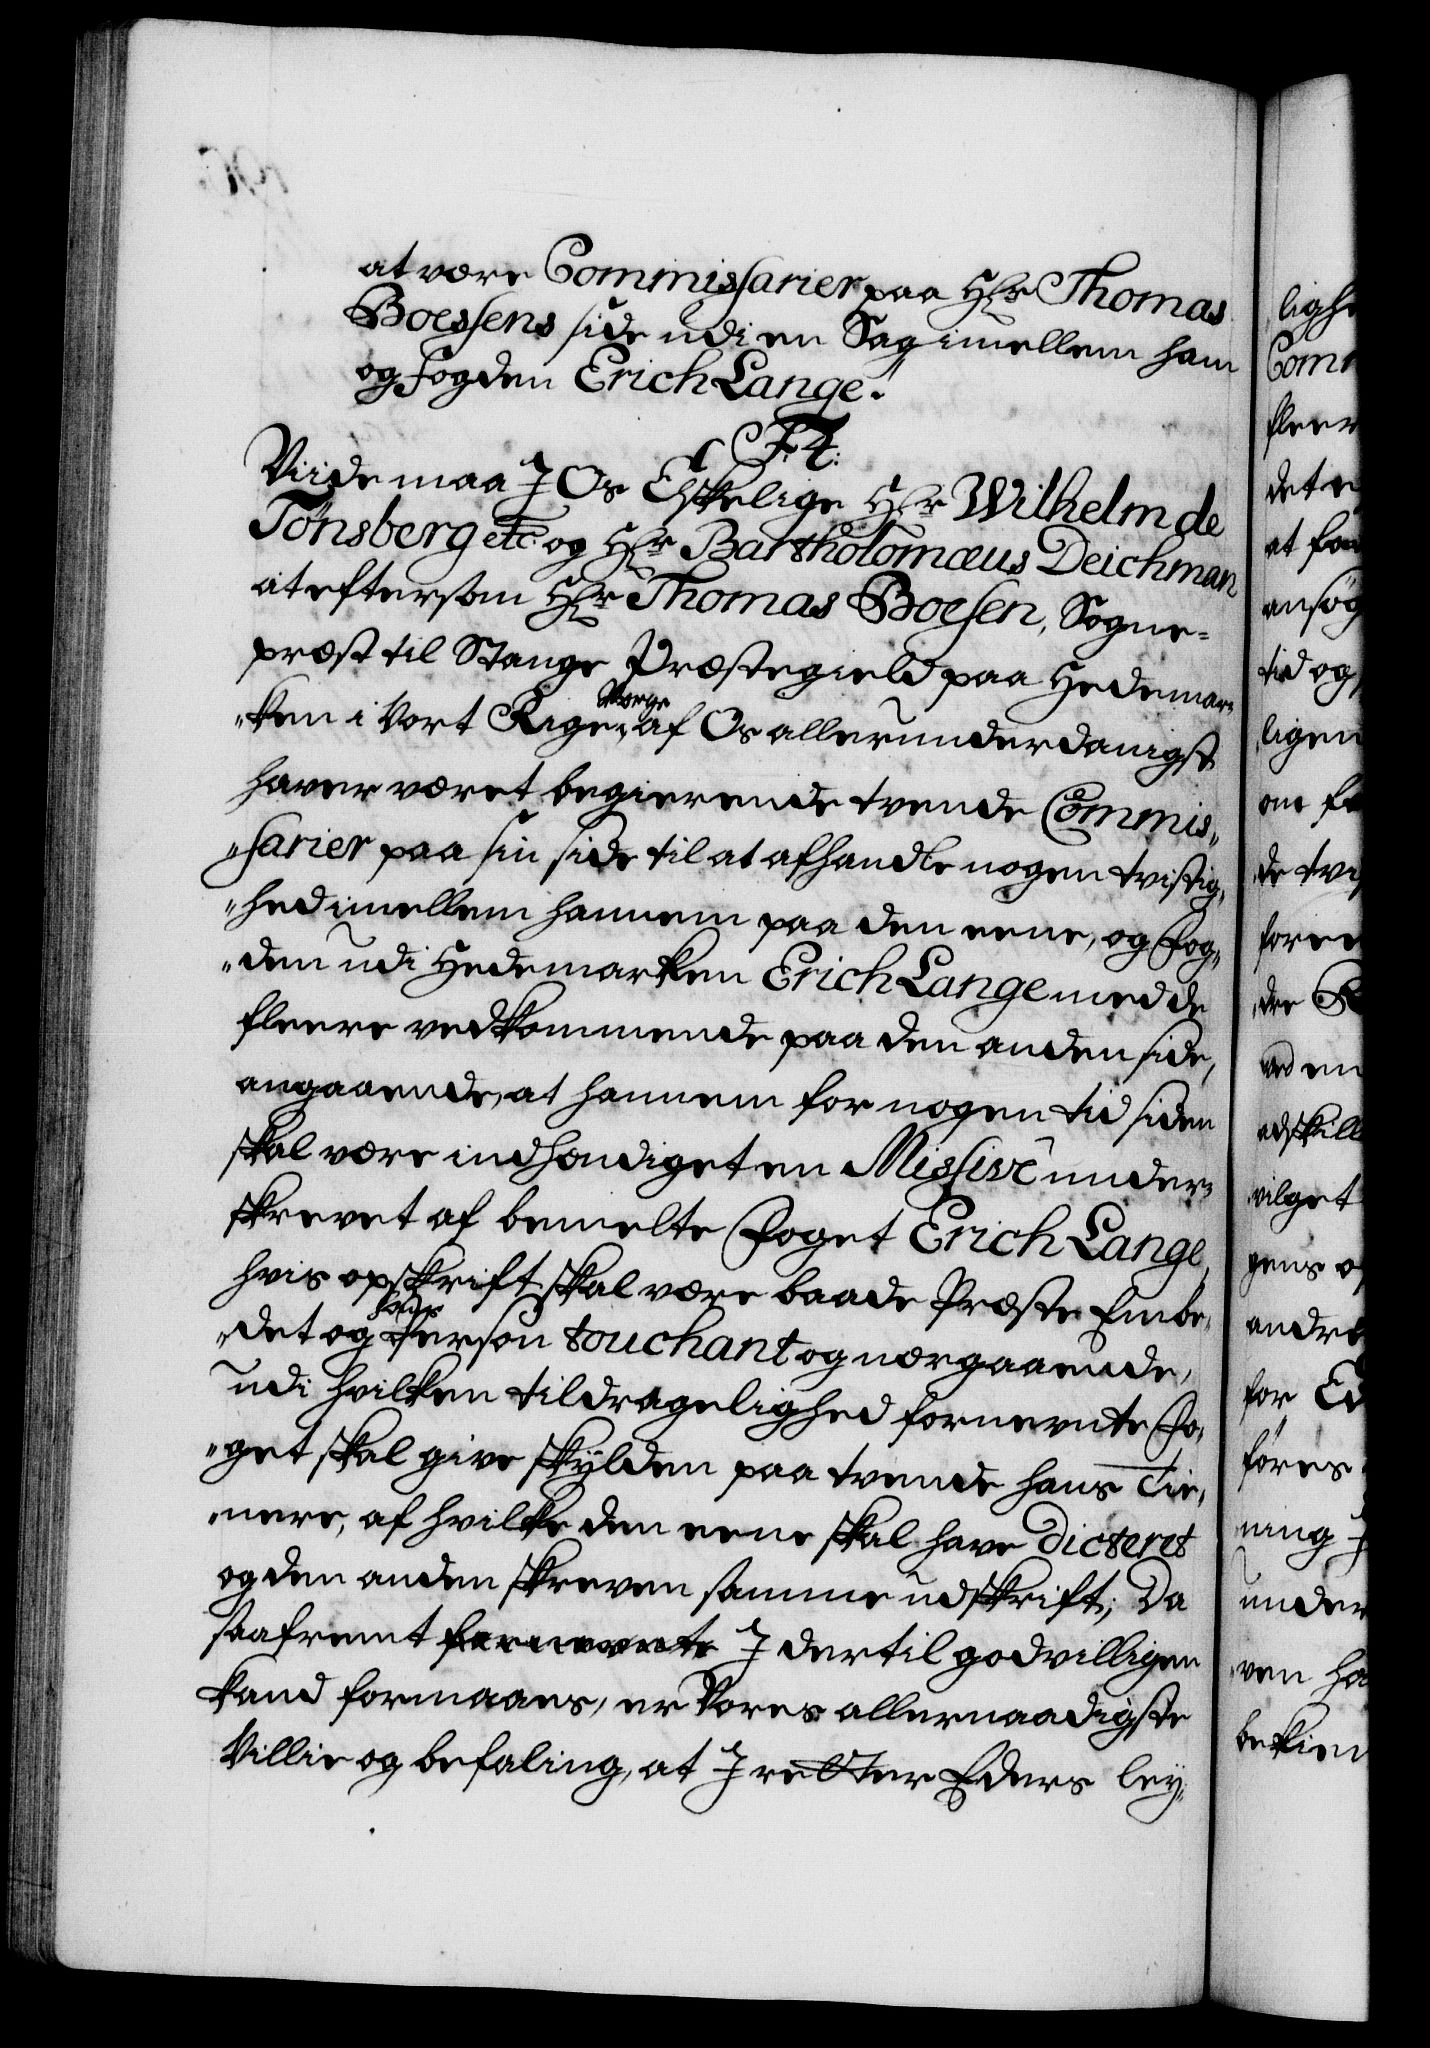 at være Commissarier paa Hr Thomas
Boessens side udi en Sag imellem ham
og fogden Erich Lange.
F. 4.
Viide maa I Os Elskelige Hr Wilhelm de
Tonsberg etc. og Hr Bartholomæus Deichman
at eftersom Hr Thomas Boesen, Sogne-
præst til Stange Præstegield paa Hedemar-
"ken i Vort Rige Norge af Os allerunderdanigst
haver været begierende tvende Commis-
"sarier paa sin side til at afhandle nogen tvistig-
"hed imellem hannem paa den eene, og Fog-
"den udi Hedemarken Erich Lange med de
fleere vedkommende paa den anden side,
angaaende, at hannem for nogen tid siden
skal være indhændiget en Missive under-
skrevet af bemelte Foget Erich Lange,
hvis opskrift skal være baade Præste Embe-
"det og hans Person touchant og nærgaaende,
udi hvilken tildragelighed fornevnte Fo-
"get skal give skylden paa tvende hans Tie-
"nere, af hvilke den eene skal have dicteret
og den anden skreven samme udskrift; Da
saafremt fornevnte I dertil godvilligen
kand formaaes, er Vores allernaadigste
Villie og befaling, at I retter Eders ley-
ligh
Com
fleer
det
at
ansøg
tid og
ligen
om
de tvi
foree
dre
ved en
adskill
vilget
gens
andre
for Ed
føres
ning I
under
ven ha
bekien